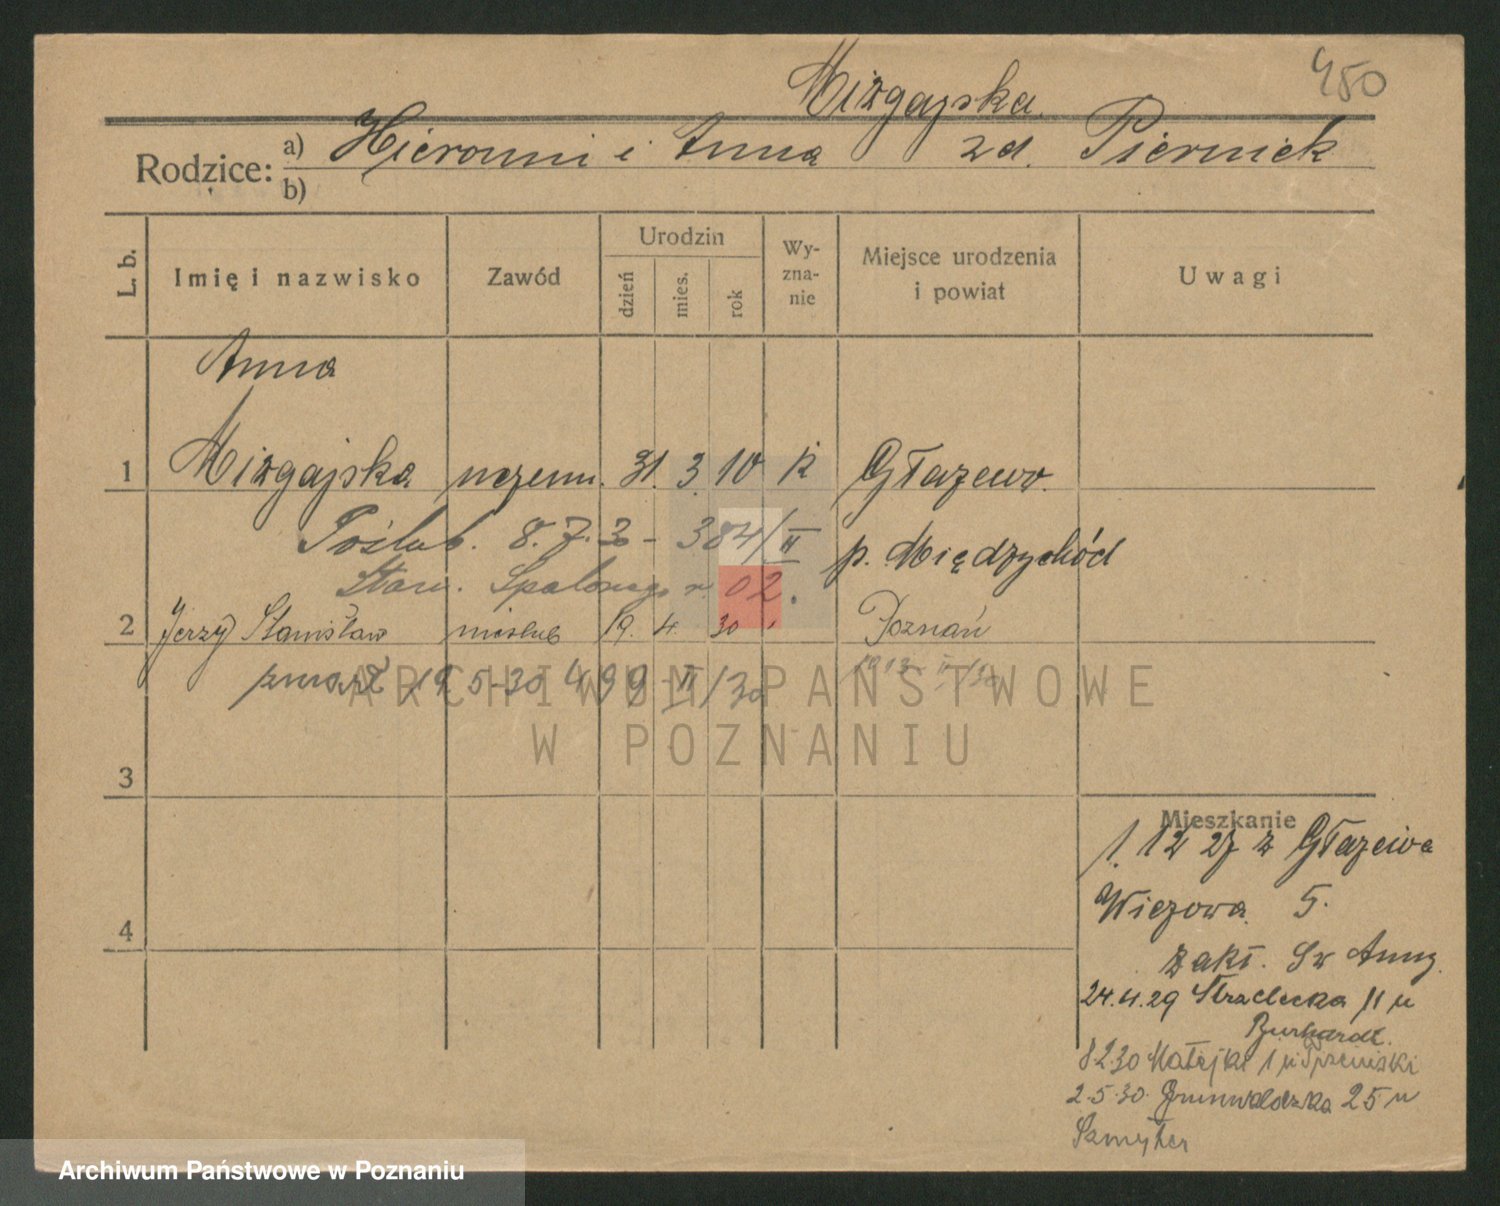 450
Mizgajska
Rodzice: a) Hieronim i Anna zd. Piernick
b)
L. b. Imię i nazwisko Zawód Urodzin dzień mies. rok Wy-zna-nie Miejsce urodzenia i powiat Uwagi
Anna
1 Mizgajska uczenn. 31. 3. 10 K Głażewo.
Poślub. 8. 7. 30 - 384/II p. Międzychód
Staw. 02.
2 Jerzy Stanisław nieślub 19. 4. 30 Poznań
zmarł 19 5-30 499-II/30
ARCHIWUM PAŃSTWOWE
W POZNANIU
3
Mieszkanie
1. 12 27 z Głażewa
4 Wieżowa 5.
Zakł. Św Anny.
24.4.29 Strzelecka 11 u
Burhardt.
8 2 30 Matejki 1 u
2.5.30. Grunwaldzka 25 u
Szmyter
Archiwum Państwowe w Poznaniu